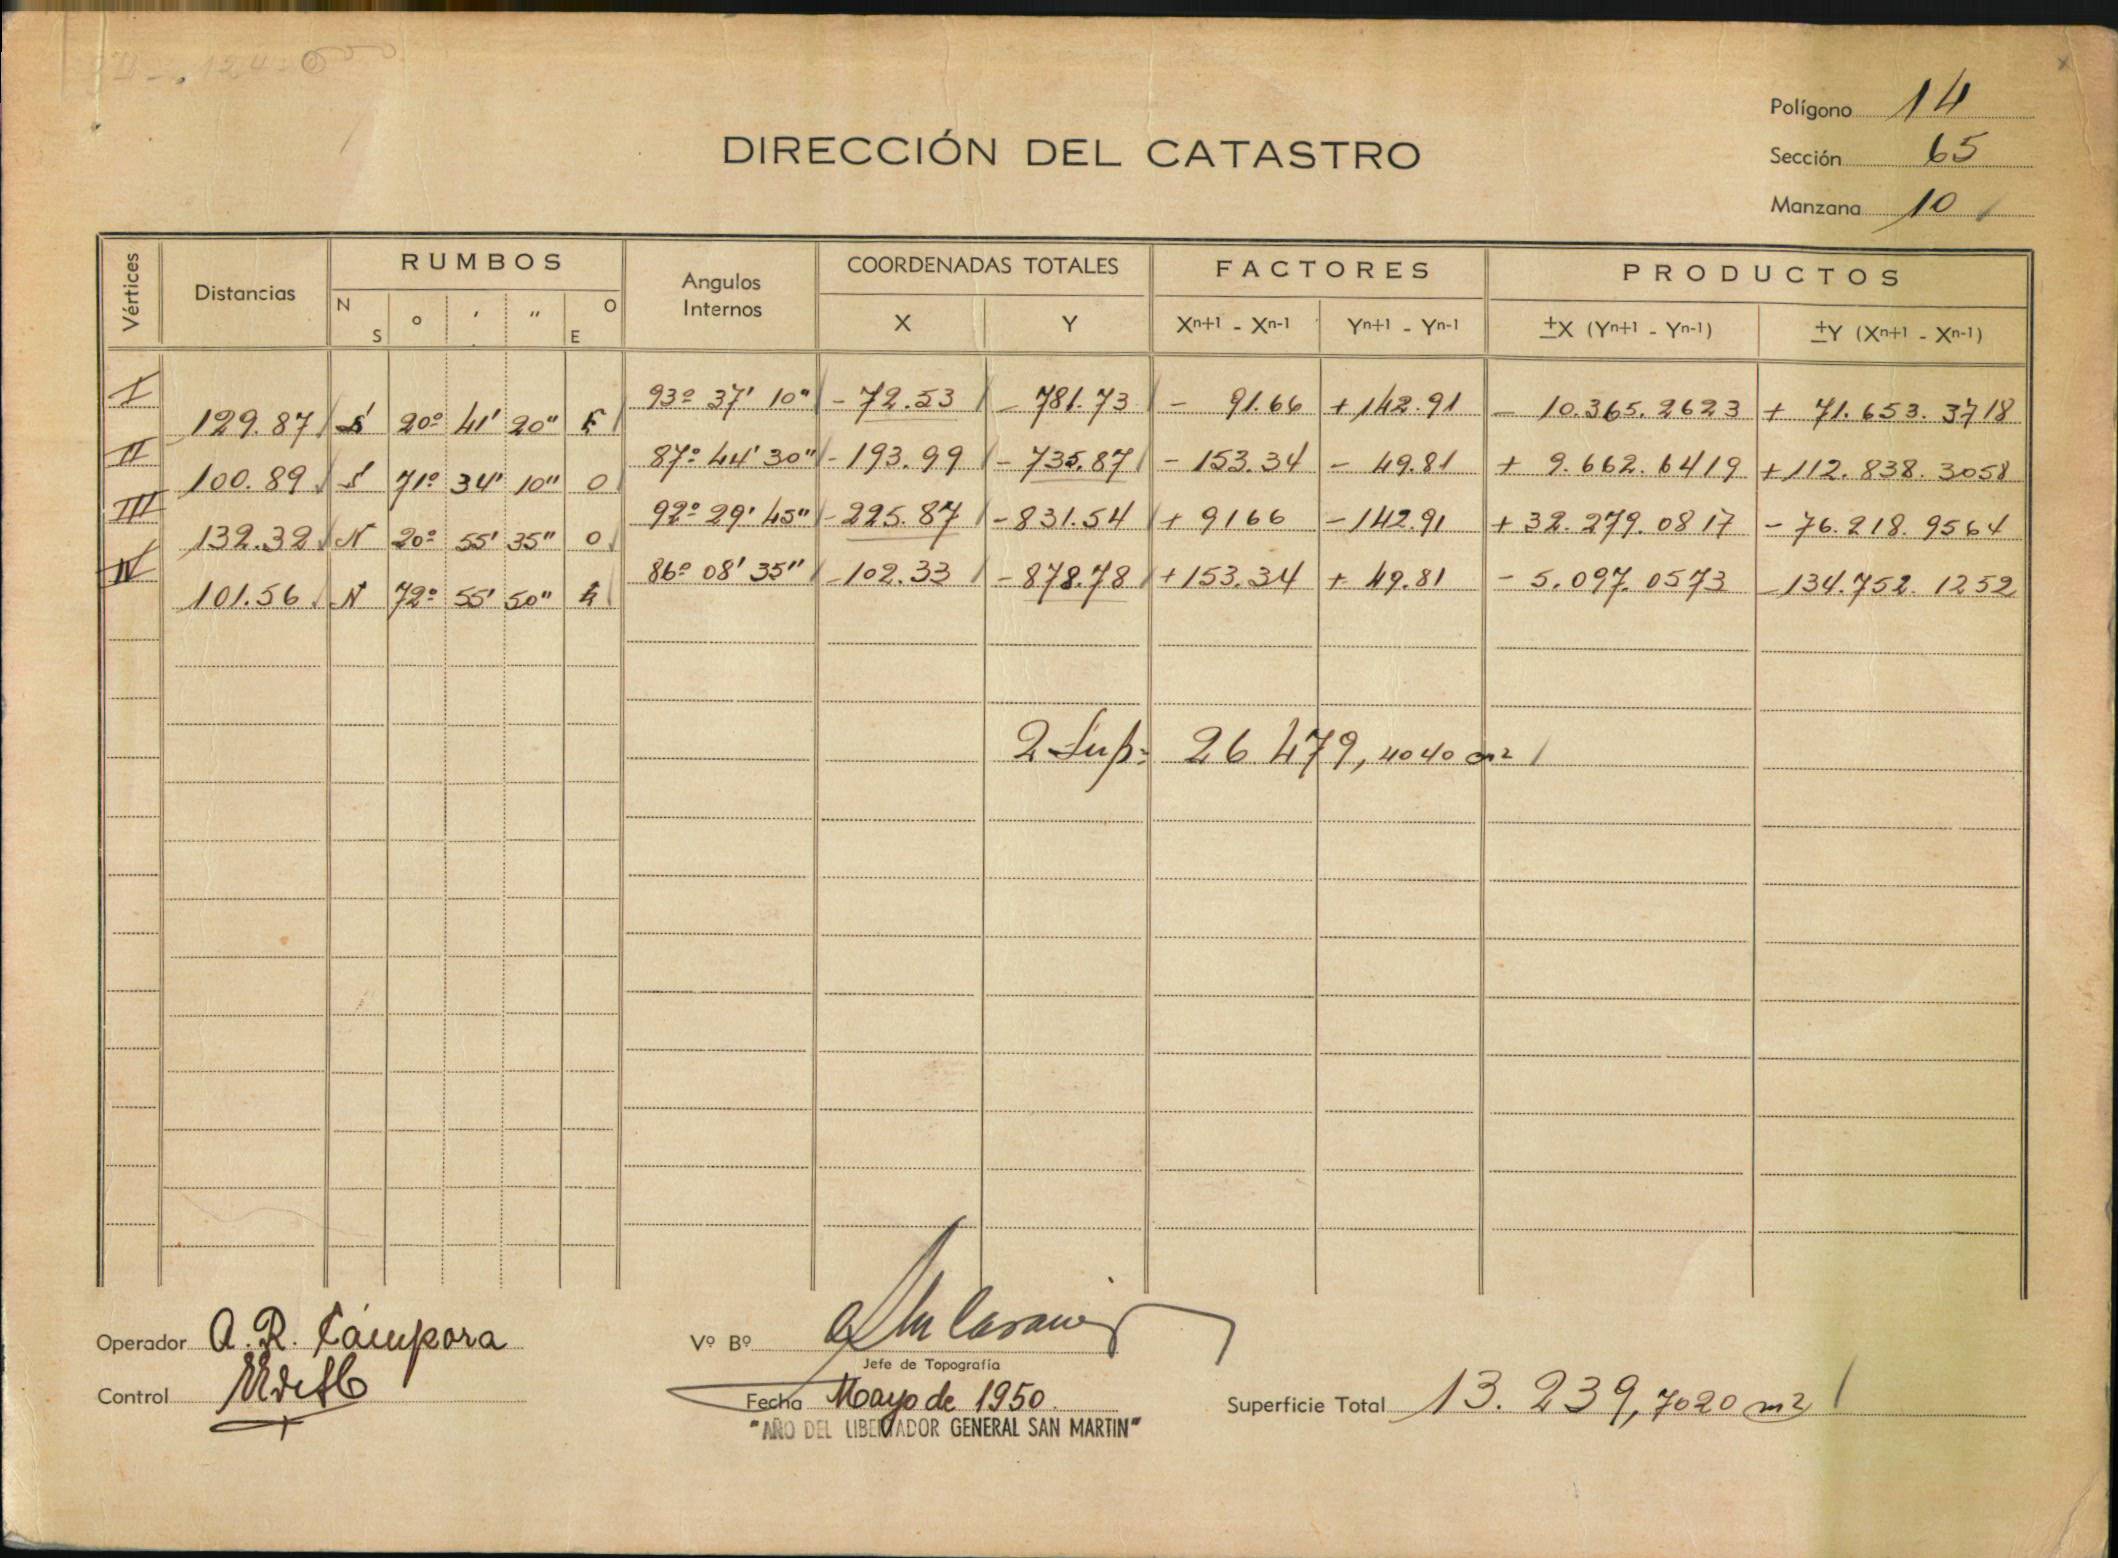 Polígono 14
DIRECCIÓN DEL CATASTRO
Sección 65
Manzana 10
Vértices Distancias RUMBOS Angulos Internos COORDENADAS TOTALES FACTORES PRODUCTOS
N S o ′ ″ O E X Y Xn+1 - Xn-1 Yn+1 - Yn-1 ±X (Yn+1 - Yn-1) ±Y (Xn+1 - Xn-1)
I 93º 37' 10" - 72.53 - 781.73 - 91.66 + 142.91 - 10.365.2623 + 71.653.3718
129.87 S 20º 41' 20" E
II 87º 44' 30" - 193.99 - 735.87 - 153.34 - 49.81 + 9.662.6419 + 112.838.3058
100.89 S 71º 34' 10" O
III 92º 29' 45" - 225.87 - 831.54 + 9166 - 142.91 + 32.279.0817 - 76.218.9564
132.32 N 20º 55' 35" O
IV 86º 08' 35" - 102.33 - 878.78 + 153.34 + 49.81 - 5.097.0573 - 134.752.1252
101.56 N 72º 55' 50" E
2 Sup= 26 479,4040 m2
Operador A. R. Cámpora
Vº Bº
Jefe de Topografía
Control
Fecha Mayo de 1950.
Superficie Total 13.239,7020 m2
"AÑO DEL LIBERTADOR GENERAL SAN MARTIN"